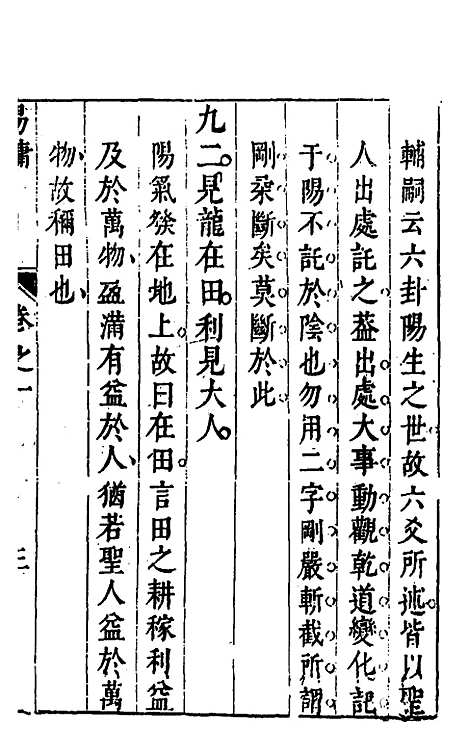 輔嗣云六卦陽生之世故六爻所述皆以聖
人出處託之葢出處大事動觀乾道變化記
于陽不託於陰也勿用二字剛嚴斬截所謂
剛柔斷矣莫斷於此
九二見龍在田利見大人
陽氣發在地上故曰在田言田之耕稼利益
及於萬物盈滿有益於人猶若聖人益於萬
物故稱田也
易 卷之一 三